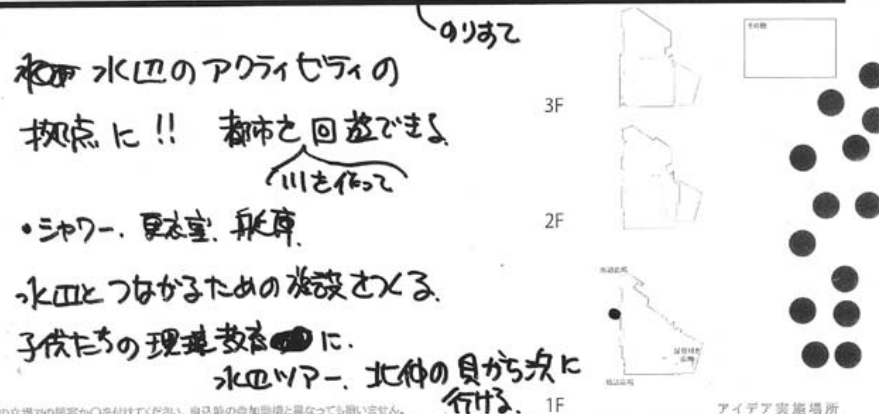 のりすて
水辺のアクティビティの
拠点に!! 都市を回遊できる
川を作って
・シャワー、更衣室、艇庫、
水辺とつながるための施設をつくる。
子供たちの環境教育に、
水辺ツアー、北仲の見から次に
行ける。
3F
2F
1F
その他
水辺広場
アイデア実施場所